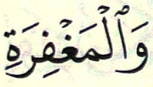 وَٱلۡمَغۡفِرَةِ